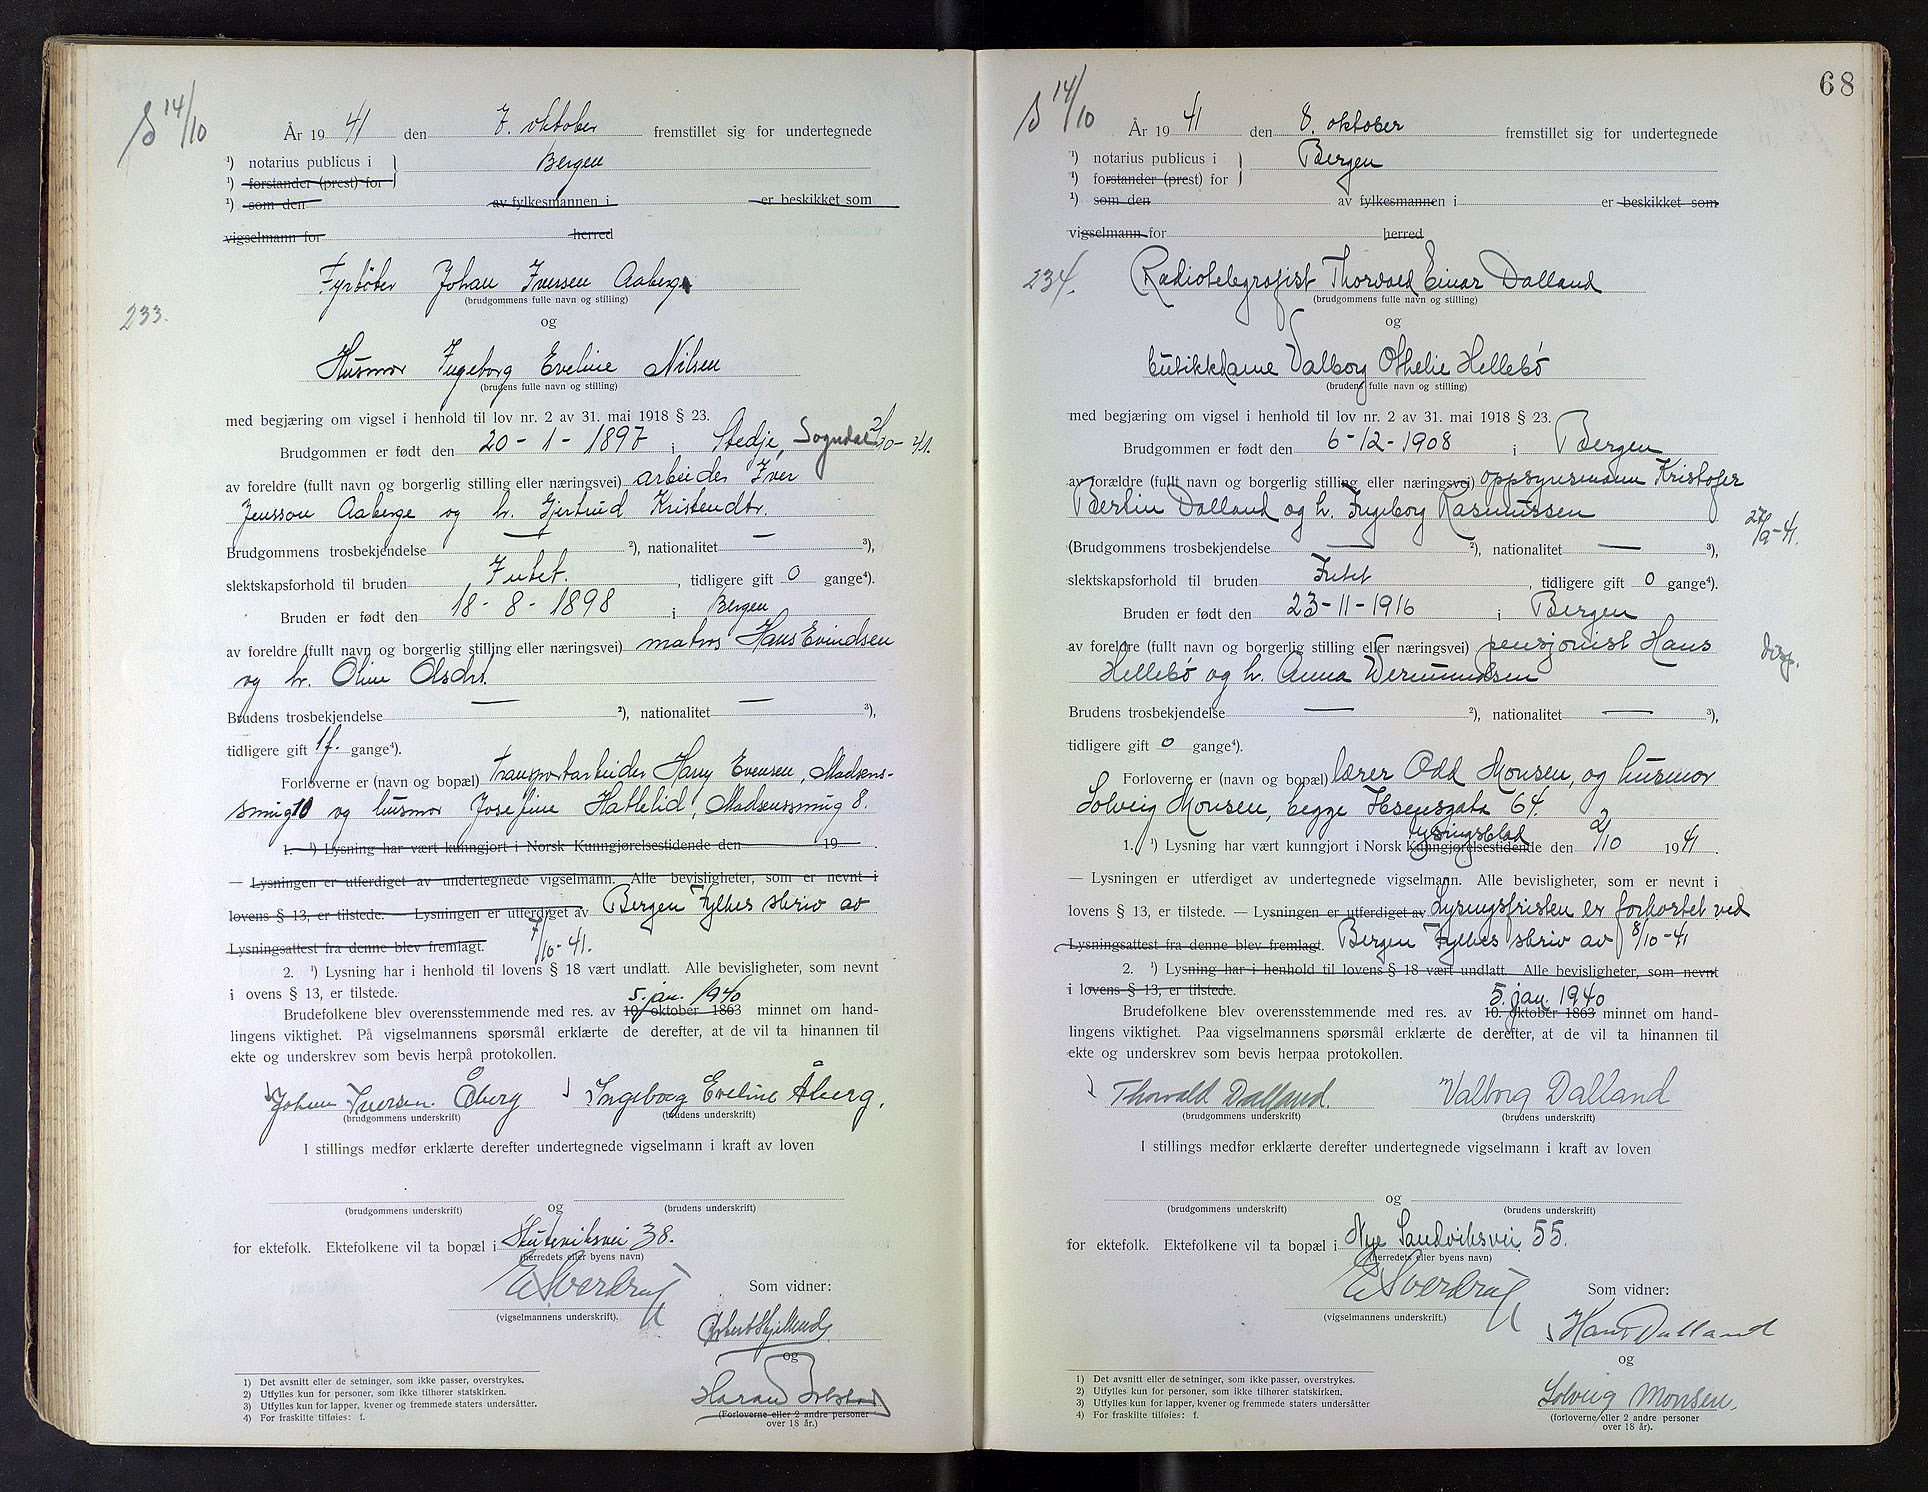 14/10
År 19 41 den 7. oktober fremstillet sig for undertegnede
¹) notarius publicus i Bergen
¹) forstander (prest) for
¹) som den av fylkesmannen i er beskikket som
vigselmann for herred
Fyrbøter Johan Iversen Aaberge
(brudgommens fulle navn og stilling)
233.
og
Husmor Ingeborg Eveline Nilsen
(brudens fulle navn og stilling)
med begjæring om vigsel i henhold til lov nr. 2 av 31. mai 1918 § 23.
Brudgommen er født den 20 - 1 - 1897 i Stedje, Sogndal 2/10 - 41.
av foreldre (fullt navn og borgerlig stilling eller næringsvei) arbeider Iver
Jensson Aaberge og h. Gjertrud Kristendtr.
Brudgommens trosbekjendelse — ²), nationalitet — ³),
slektskapsforhold til bruden Intet. , tidligere gift 0 gange⁴).
Bruden er født den 18 - 8 - 1898 i Bergen
av foreldre (fullt navn og borgerlig stilling eller næringsvei) matros Hans Evindsen
og h. Oline Olsdtr.
Brudens trosbekjendelse — ²), nationalitet — ³),
tidligere gift 1 f. gange⁴).
Forloverne er (navn og bopæl) transportarbeider Harry Evensen, Madsens-
smug 10 og husmor Josefine Hattelid, Madsenssmug 8.
1. ¹) Lysning har vært kunngjort i Norsk Kunngjørelsestidende den 19 .
— Lysningen er utferdiget av undertegnede vigselmann. Alle bevisligheter, som er nevnt i
lovens § 13, er tilstede. — Lysningen er utferdiget av Bergen Fylkes skriv av
Lysningsattest fra denne blev fremlagt. 7/10 - 41.
2. ¹) Lysning har i henhold til lovens § 18 vært undlatt. Alle bevisligheter, som nevnt
i ovens § 13, er tilstede.
5. jan. 1940
Brudefolkene blev overensstemmende med res. av 10. oktober 1863 minnet om hand-
lingens viktighet. På vigselmannens spørsmål erklærte de derefter, at de vil ta hinannen til
ekte og underskrev som bevis herpå protokollen.
Johan Iversen Åberg Ingeborg Eveline Åberg.
(brudgommens underskrift) (brudens underskrift)
I stillings medfør erklærte derefter undertegnede vigselmann i kraft av loven
og
(brudgommens underskrift) (brudens underskrift)
for ektefolk. Ektefolkene vil ta bopæl i Skuteviksvei 38.
(herredets eller byens navn)
E Sverdrup Som vidner:
(vigselmannens underskrift).
og
(Forloverne eller 2 andre personer
over 18 år.)
1) Det avsnitt eller de setninger, som ikke passer, overstrykes.
2) Utfylles kun for personer, som ikke tilhører statskirken.
3) Utfylles kun for lapper, kvener og fremmede staters undersåtter.
4) For fraskilte tilføies: f.
68
14/10
År 19 41 den 8. oktober fremstillet sig for undertegnede
¹) notarius publicus i Bergen
¹) forstander (prest) for
¹) som den av fylkesmannen i er beskikket som
vigselmann for herred
234. Radiotelegrafist Thorvald Einar Dalland
(brudgommens fulle navn og stilling)
og
butikkdame Valborg Othelie Hellebö
(brudens fulle navn og stilling)
med begjæring om vigsel i henhold til lov nr. 2 av 31. mai 1918 § 23.
Brudgommen er født den 6 - 12 - 1908 i Bergen
av forældre (fullt navn og borgerlig stilling eller næringsvei) oppsynsmann Kristofer
Bertin Dalland og h. Ingeborg Rasmussen
27/9 - 41.
(Brudgommens trosbekjendelse — ²), nationalitet — ³),
slektskapsforhold til bruden Intet , tidligere gift 0 gange⁴).
Bruden er født den 23 - 11 - 1916 i Bergen
av foreldre (fullt navn og borgerlig stilling eller næringsvei) pensjonist Hans
Hellebö og h. Anna Wermundsen
Brudens trosbekjendelse — ²), nationalitet — ³),
tidligere gift 0 gange⁴).
Forloverne er (navn og bopæl) lærer Odd Monsen, og husmor
Solveig Monsen, begge Ibsensgata 64.
lysningsblad
1. ¹) Lysning har vært kunngjort i Norsk Kunngjørelsestidende den 2/10 19 41.
— Lysningen er utferdiget av undertegnede vigselmann. Alle bevisligheter, som er nevnt i
lovens § 13, er tilstede. — Lysningen er utferdiget av Lysningsfristen er forkortet ved
Lysningsattest fra denne blev fremlagt. Bergen Fylkes skriv av 8/10 - 41
2. ¹) Lysning har i henhold til lovens § 18 vært undlatt. Alle bevisligheter, som nevnt
i lovens § 13, er tilstede.
5. jan. 1940
Brudefolkene blev overensstemmende med res. av 10. oktober 1863 minnet om hand-
lingens viktighet. Paa vigselmannens spørsmål erklærte de derefter, at de vil ta hinannen til
ekte og underskrev som bevis herpaa protokollen.
Thorvald Dalland. Valborg Dalland
(brudgommens underskrift) (brudens underskrift)
I stillings medfør erklærte derefter undertegnede vigselmann i kraft av loven
og
(brudgommens underskrift) (brudens underskrift)
for ektefolk. Ektefolkene vil ta bopæl i Nye Sandviksvei 55.
(herredets eller byens navn)
E Sverdrup Som vidner:
(vigselmannens underskrift.)
Hans Dalland
og
Solveig Monsen.
(forloverne eller 2 andre personer
over 18 år).
1) Det avsnitt eller de setninger, som ikke passer, overstrykes.
2) Utfylles kun for personer, som ikke tilhører statskirken.
3) Utfylles kun for lapper, kvener og fremmede staters undersåtter
4) For fraskilte tilføies: f.